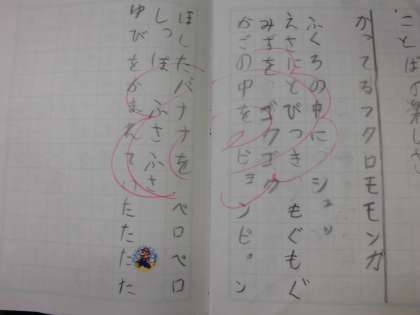 ことばの楽しさ
かってるフクロモモンガ
ふくろの中に シュッ
えさにとびつき もぐもぐ
みずを ゴクゴク
かごの中を ピョンピョン
ほしたバナナを ペロペロ
しっぽ ふさふさ
ゆびをかまれていたたたた